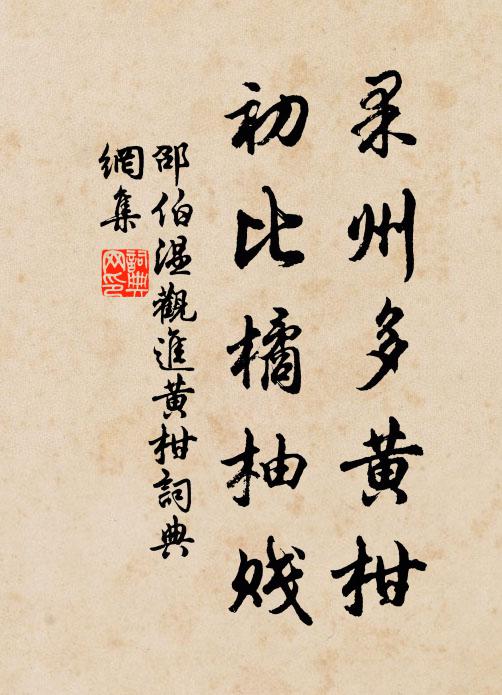 果州多黄柑
初比橘柚贱
邵伯温觀進黄柑詞典
網集
詞典
网印